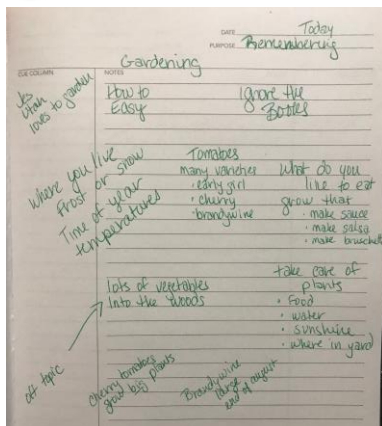 DATE Today
PURPOSE Remembering
Gardening
CUE COLUMN
NOTES
Utah
loves to garden
How to
Easy
Ignore the
Books
Where you live
Frost or snow
Time of year
temperatures
Tomatoes
many varieties
• early girl
• cherry
• brandywine
What do you
like to eat
grow that
• make sauce
• make salsa
• make bruschett
lots of vegetables
Into the woods
take care of
plants
• food
• water
• sunshine
• where in yard
off topic
cherry tomatoes
grow big plants
Brandywine
large
end of august